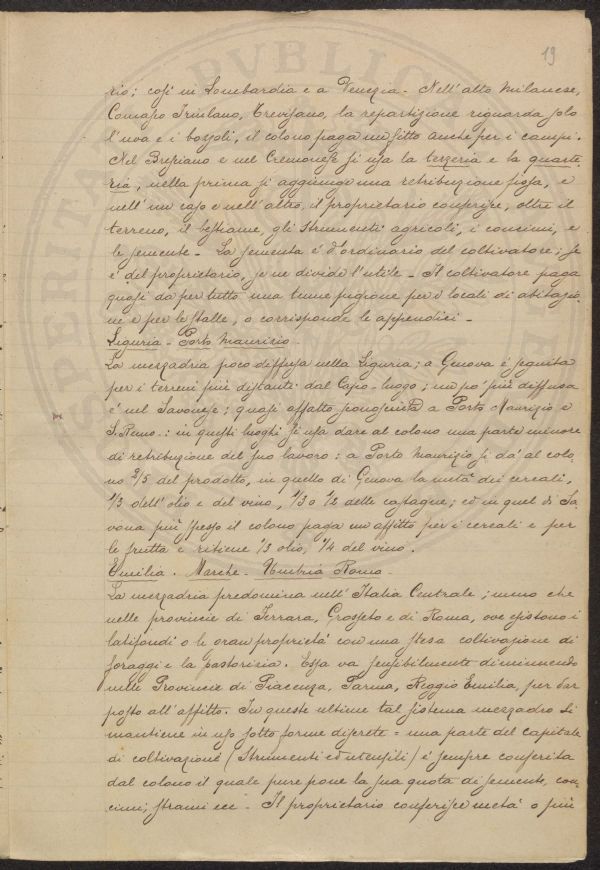 19
rio; così in Lombardia e a Venezia. Nell'alto Milanese,
Comasco Friulano, Trevisano, la repartizione riguarda solo
l'uva e i bozzoli, il colono paga un fitto anche per i campi.
Nel Bresciano e nel Cremonese si usa la terzeria e la quarte-
ria, nella prima si aggiunge una retribuzione fissa, e
nell'un caso e nell'altro, il proprietario conferisce, oltre il
terreno, il bestiame, gli strumenti agricoli, i concimi, e
le semente - La sementa è d'ordinario del coltivatore; se
è del proprietario, se ne divide l'utile - Il coltivatore paga
quasi da per tutto una tenue pigione per i locali di abitazio
ne e per le stalle, o corrisponde le appendici -
Liguria - Porto Maurizio -
La mezzadria poco diffusa nella Liguria; a Genova è seguita
per i terreni più distanti dal Capo-luogo; un po' più diffusa
è nel Savonese; quasi affatto sconosciuta a Porto Maurizio e
S. Remo: in questi luoghi si usa dare al colono una parte minore
di retribuzione del suo lavoro: a Porto Maurizio si dà al colo
no 2/5 del prodotto, in quello di Genova la metà dei cereali,
1/3 dell'olio e del vino, 1/3 o 1/2 delle castagne; ed in quel di Sa
vona più spesso il colono paga un affitto per i cereali e per
le frutta e ritiene 1/3 olio, 1/4 del vino.
Emilia. Marche - Umbria Roma -
La mezzadria predomina nell'Italia Centrale; meno che
nelle provincie di Ferrara, Grosseto e di Roma, ove esistono i
latifondi o le gran proprietà con una stesa coltivazione di
foraggi e la pastorizia. Essa va sensibilmente diminuendo
nelle Provincie di Piacenza, Parma, Reggio Emilia, per dar
posto all'affitto. In queste ultime tal sistema mezzadro si
mantiene in uso sotto forme discrete = una parte del capitale
di coltivazione (Strumenti ed utensili) è sempre conferita
dal colono il quale pure pone la sua quota di semente, con-
cimi, strami ecc - Il proprietario conferisce metà o più